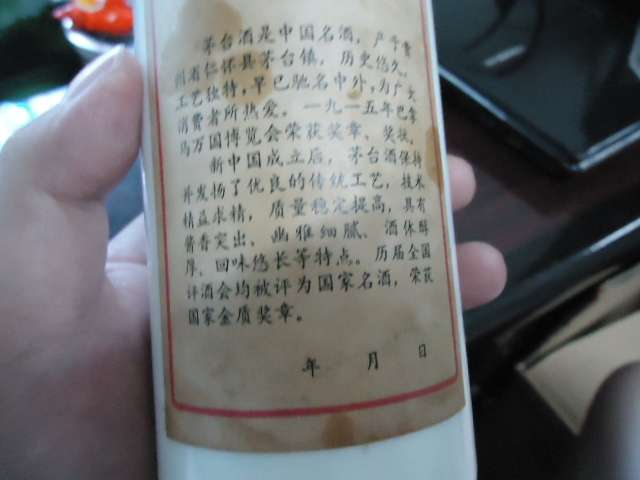 茅台酒是中国名酒，产于贵
州省仁怀县茅台镇，历史悠久，
工艺独特，早已驰名中外，为广大
消费者所热爱。一九一五年巴拿
马万国博览会荣获奖章、奖状。
新中国成立后，茅台酒保持
并发扬了优良的传统工艺，技术
精益求精，质量稳定提高，具有
酱香突出、幽雅细腻、酒体醇
厚、回味悠长等特点。历届全国
评酒会均被评为国家名酒，荣获
国家金质奖章。
年 月 日